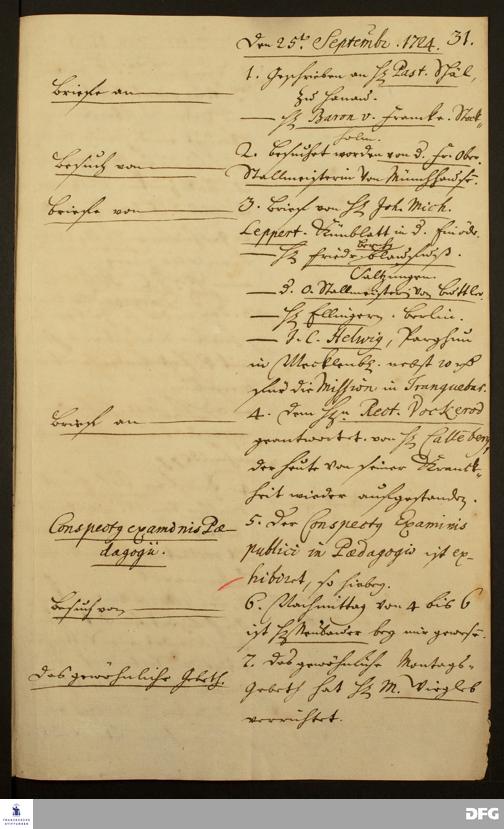 Den 25t. Septembr. 1724. 31.
Briefe an
1. Geschrieben an H. Past. Schäl,
zu Hanau.
— H. Baron v. Francke. Stock-
holm.
Besuch von
2. besuchet worden von d. Fr. Ober-
Stallmeisterin von Münchhausen.
Briefe von
3. Brief von H. Joh. Mich.
Leppert. in d. Einöde.
— H. Friedr.
Saltzungen.
— d. O. Stallmeisterin von
— H. Ellingern. Berlin.
— J. C. Helwig, Parchim
in Mecklenb. nebst 20
für die Mission in Tranquebar.
Brief an
4. dem Hn. Rect. Vockerod
geantwortet. von H. Calleberg,
der heute von seiner Kranck-
heit wieder aufgestanden.
Conspectus examinis Pæ-
dagogii.
5. Der Conspectus Examinis
publici in Pædagogio ist ex-
hibiret, so hiebey.
Besuch von
6. Nachmittag von 4 bis 6
ist H. Neubauer bey mir gewesen.
Das gewöhnliche Gebeth.
7. Das gewöhnliche Montags-
Gebeth hat H. M. Viegleb
verrichtet.
FRANCKESCHE
STIFTUNGEN
DFG